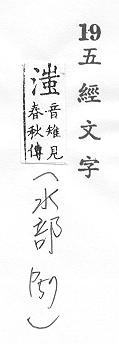 19五經文字
滍
音雉見
春秋傳
(水部 P57)